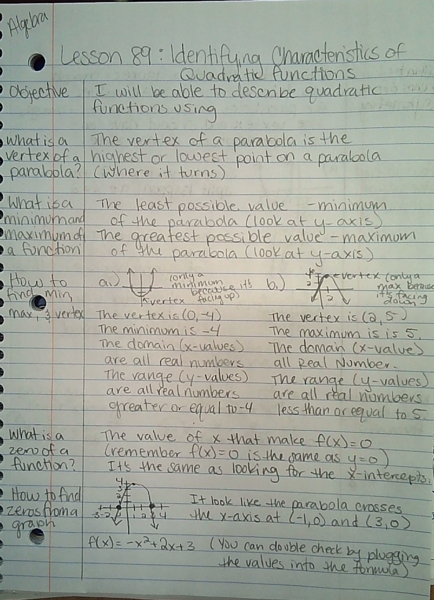 Algebra
Lesson 89: Identifying Characteristics of
Quadratic functions
Objective
I will be able to describe quadratic
functions using
What is a
vertex of a
parabola?
The vertex of a parabola is the
highest or lowest point on a parabola
(Where it turns)
What is a
minimum and
maximum of
a function
The least possible value - minimum
of the parabola (look at y-axis)
The greatest possible value - maximum
of the parabola (look at y-axis)
How to
find min,
max, & vertex
a.)
(only a
minimum
because its
facing up)
vertex
The vertex is (0,-4)
The minimum is -4
The domain (x-values)
are all real numbers
The range (y-values)
are all real numbers
greater or equal to -4
b.)
vertex (only a
max because
it's facing
down)
The vertex is (2,5)
The maximum is is 5.
The domain (x-value)
all Real Number.
The range (y-values)
are all real numbers
less than or equal to 5.
What is a
zero of a
function?
The value of x that make f(x)=0
(remember f(x)=0 is the same as y=0)
It's the same as looking for the x-intercepts.
How to find
zeros from a
graph
4
2
-2
2
4
It look like the parabola crosses
the x-axis at (-1,0) and (3,0)
f(x)=-x²+2x+3 (You can double check by plugging
the values into the formula)